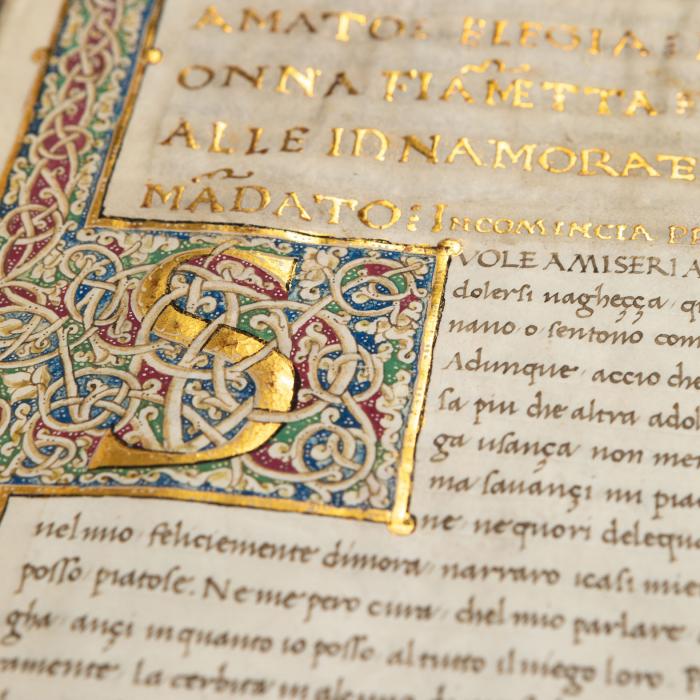 AMATOE ELEGIA
ONNA FIAMETTA
ALLE INNAMORATE
MÃDATO: INCOMINCIA
SVOLE AMISERI A
dolersi uagheçça q
nano o sentono com
Adunque accio che
sa piu che altra adol
ga usança non me
ma sauançi mi pia
ne nequori delequ
nel mio feliciemente dimora narraro icasi mie
posso piatose. Ne me pero cura, chel mio parlare
gha ançi inquanto io posso al tutto il niego loro.
ramente la cerbita in alcuno